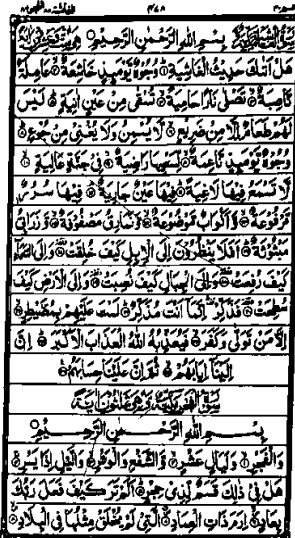 بِسْمِ اللهِ الرَّحْمٰنِ الرَّحِيْمِ
هَلْ اَتٰىكَ حَدِيْثُ الْغَاشِيَةِ ۝ وُجُوْهٌ يَّوْمَىِٕذٍ خَاشِعَةٌ ۝ عَامِلَةٌ
نَّاصِبَةٌ ۝ تَصْلٰى نَارًا حَامِيَةً ۝ تُسْقٰى مِنْ عَيْنٍ اٰنِيَةٍ ۝ لَيْسَ
لَهُمْ طَعَامٌ اِلَّا مِنْ ضَرِيْعٍ ۝ لَّا يُسْمِنُ وَلَا يُغْنِيْ مِنْ جُوْعٍ ۝
وُجُوْهٌ يَّوْمَىِٕذٍ نَّاعِمَةٌ ۝ لِّسَعْيِهَا رَاضِيَةٌ ۝ فِيْ جَنَّةٍ عَالِيَةٍ ۝
لَّا تَسْمَعُ فِيْهَا لَاغِيَةً ۝ فِيْهَا عَيْنٌ جَارِيَةٌ ۝ فِيْهَا سُرُرٌ
مَّرْفُوْعَةٌ ۝ وَّاَكْوَابٌ مَّوْضُوْعَةٌ ۝ وَّنَمَارِقُ مَصْفُوْفَةٌ ۝ وَّزَرَابِيُّ
مَبْثُوْثَةٌ ۝ اَفَلَا يَنْظُرُوْنَ اِلَى الْاِبِلِ كَيْفَ خُلِقَتْ ۝ وَاِلَى السَّمَآءِ
كَيْفَ رُفِعَتْ ۝ وَاِلَى الْجِبَالِ كَيْفَ نُصِبَتْ ۝ وَاِلَى الْاَرْضِ كَيْفَ
سُطِحَتْ ۝ فَذَكِّرْ اِنَّمَآ اَنْتَ مُذَكِّرٌ ۝ لَسْتَ عَلَيْهِمْ بِمُصَۜيْطِرٍ ۝
اِلَّا مَنْ تَوَلّٰى وَكَفَرَ ۝ فَيُعَذِّبُهُ اللهُ الْعَذَابَ الْاَكْبَرَ ۝ اِنَّ
اِلَيْنَآ اِيَابَهُمْ ۝ ثُمَّ اِنَّ عَلَيْنَا حِسَابَهُمْ ۝
بِسْمِ اللهِ الرَّحْمٰنِ الرَّحِيْمِ
وَالْفَجْرِ ۝ وَلَيَالٍ عَشْرٍ ۝ وَّالشَّفْعِ وَالْوَتْرِ ۝ وَالَّيْلِ اِذَا يَسْرِ ۝
هَلْ فِيْ ذٰلِكَ قَسَمٌ لِّذِيْ حِجْرٍ ۝ اَلَمْ تَرَ كَيْفَ فَعَلَ رَبُّكَ
بِعَادٍ ۝ اِرَمَ ذَاتِ الْعِمَادِ ۝ الَّتِيْ لَمْ يُخْلَقْ مِثْلُهَا فِي الْبِلَادِ ۝